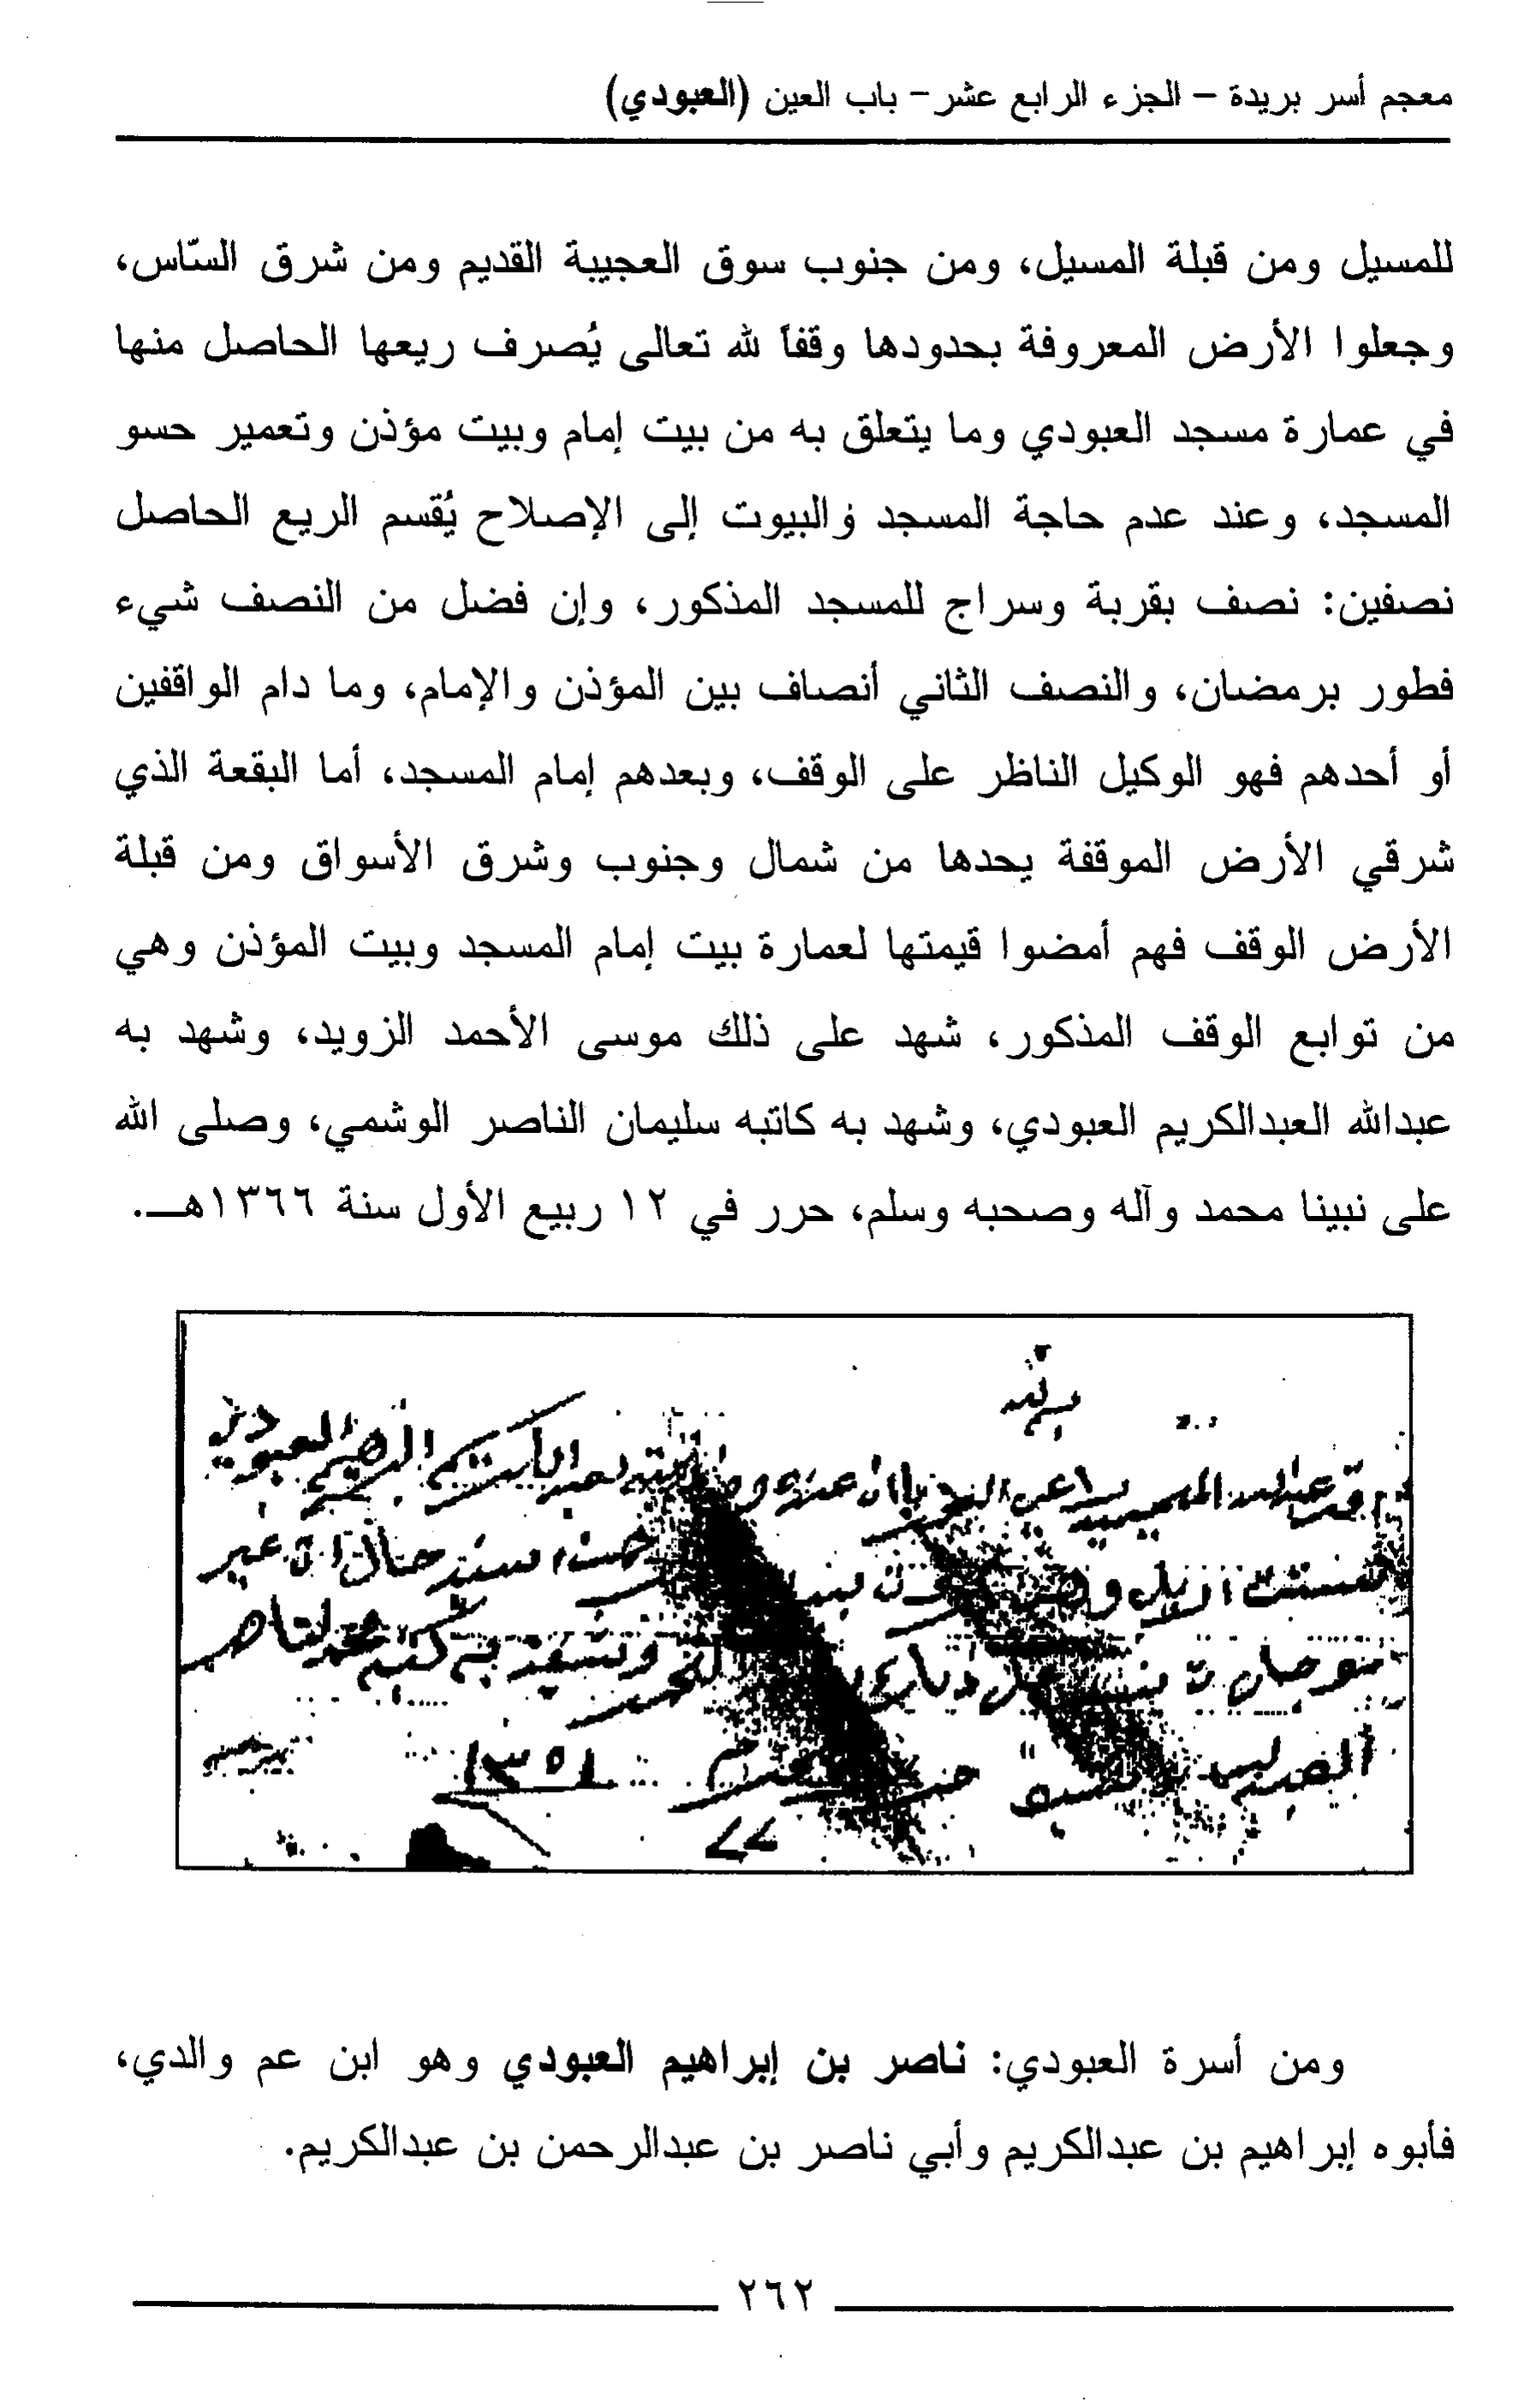 معجم أسر بريدة – الجزء الرابع عشر – باب العين (العبودي)
للمسيل ومن قبلة المسيل، ومن جنوب سوق العجيبة القديم ومن شرق السّاس،
وجعلوا الأرض المعروفة بحدودها وقفاً لله تعالى يُصرف ريعها الحاصل منها
في عمارة مسجد العبودي وما يتعلق به من بيت إمام وبيت مؤذن وتعمير حسو
المسجد، وعند عدم حاجة المسجد والبيوت إلى الإصلاح يُقسم الريع الحاصل
نصفين: نصف بقربة وسراج للمسجد المذكور، وإن فضل من النصف شيء
فطور برمضان، والنصف الثاني أنصاف بين المؤذن والإمام، وما دام الواقفين
أو أحدهم فهو الوكيل الناظر على الوقف، وبعدهم إمام المسجد، أما البقعة الذي
شرقي الأرض الموقفة يحدها من شمال وجنوب وشرق الأسواق ومن قبلة
الأرض الوقف فهم أمضوا قيمتها لعمارة بيت إمام المسجد وبيت المؤذن وهي
من توابع الوقف المذكور، شهد على ذلك موسى الأحمد الزويد، وشهد به
عبدالله العبدالكريم العبودي، وشهد به كاتبه سليمان الناصر الوشمي، وصلى الله
على نبينا محمد وآله وصحبه وسلم، حرر في ١٢ ربيع الأول سنة ١٣٦٦هـ.
العبودي
محمد الناصر
١٣٥١
ومن أسرة العبودي: ناصر بن إبراهيم العبودي وهو ابن عم والدي،
فأبوه إبراهيم بن عبدالكريم وأبي ناصر بن عبدالرحمن بن عبدالكريم.
٢٦٢